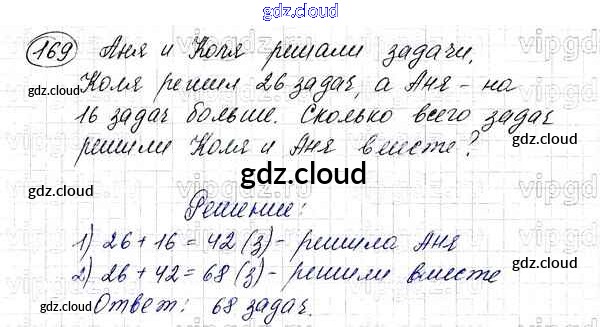 gdz.cloud
169 Аня и Коля решали задачи,
Коля решил 26 задач, а Аня - на
16 задач больше. Сколько всего задач
решили Коля и Аня вместе?
gdz.cloud
Решение:
1) 26 + 16 = 42 (з) - решила Аня
2) 26 + 42 = 68 (з) - решили вместе
Ответ: 68 задач.
gdz.cloud
gdz.cloud
gdz.cloud
gdz.cloud
gdz.cloud
gdz.cloud